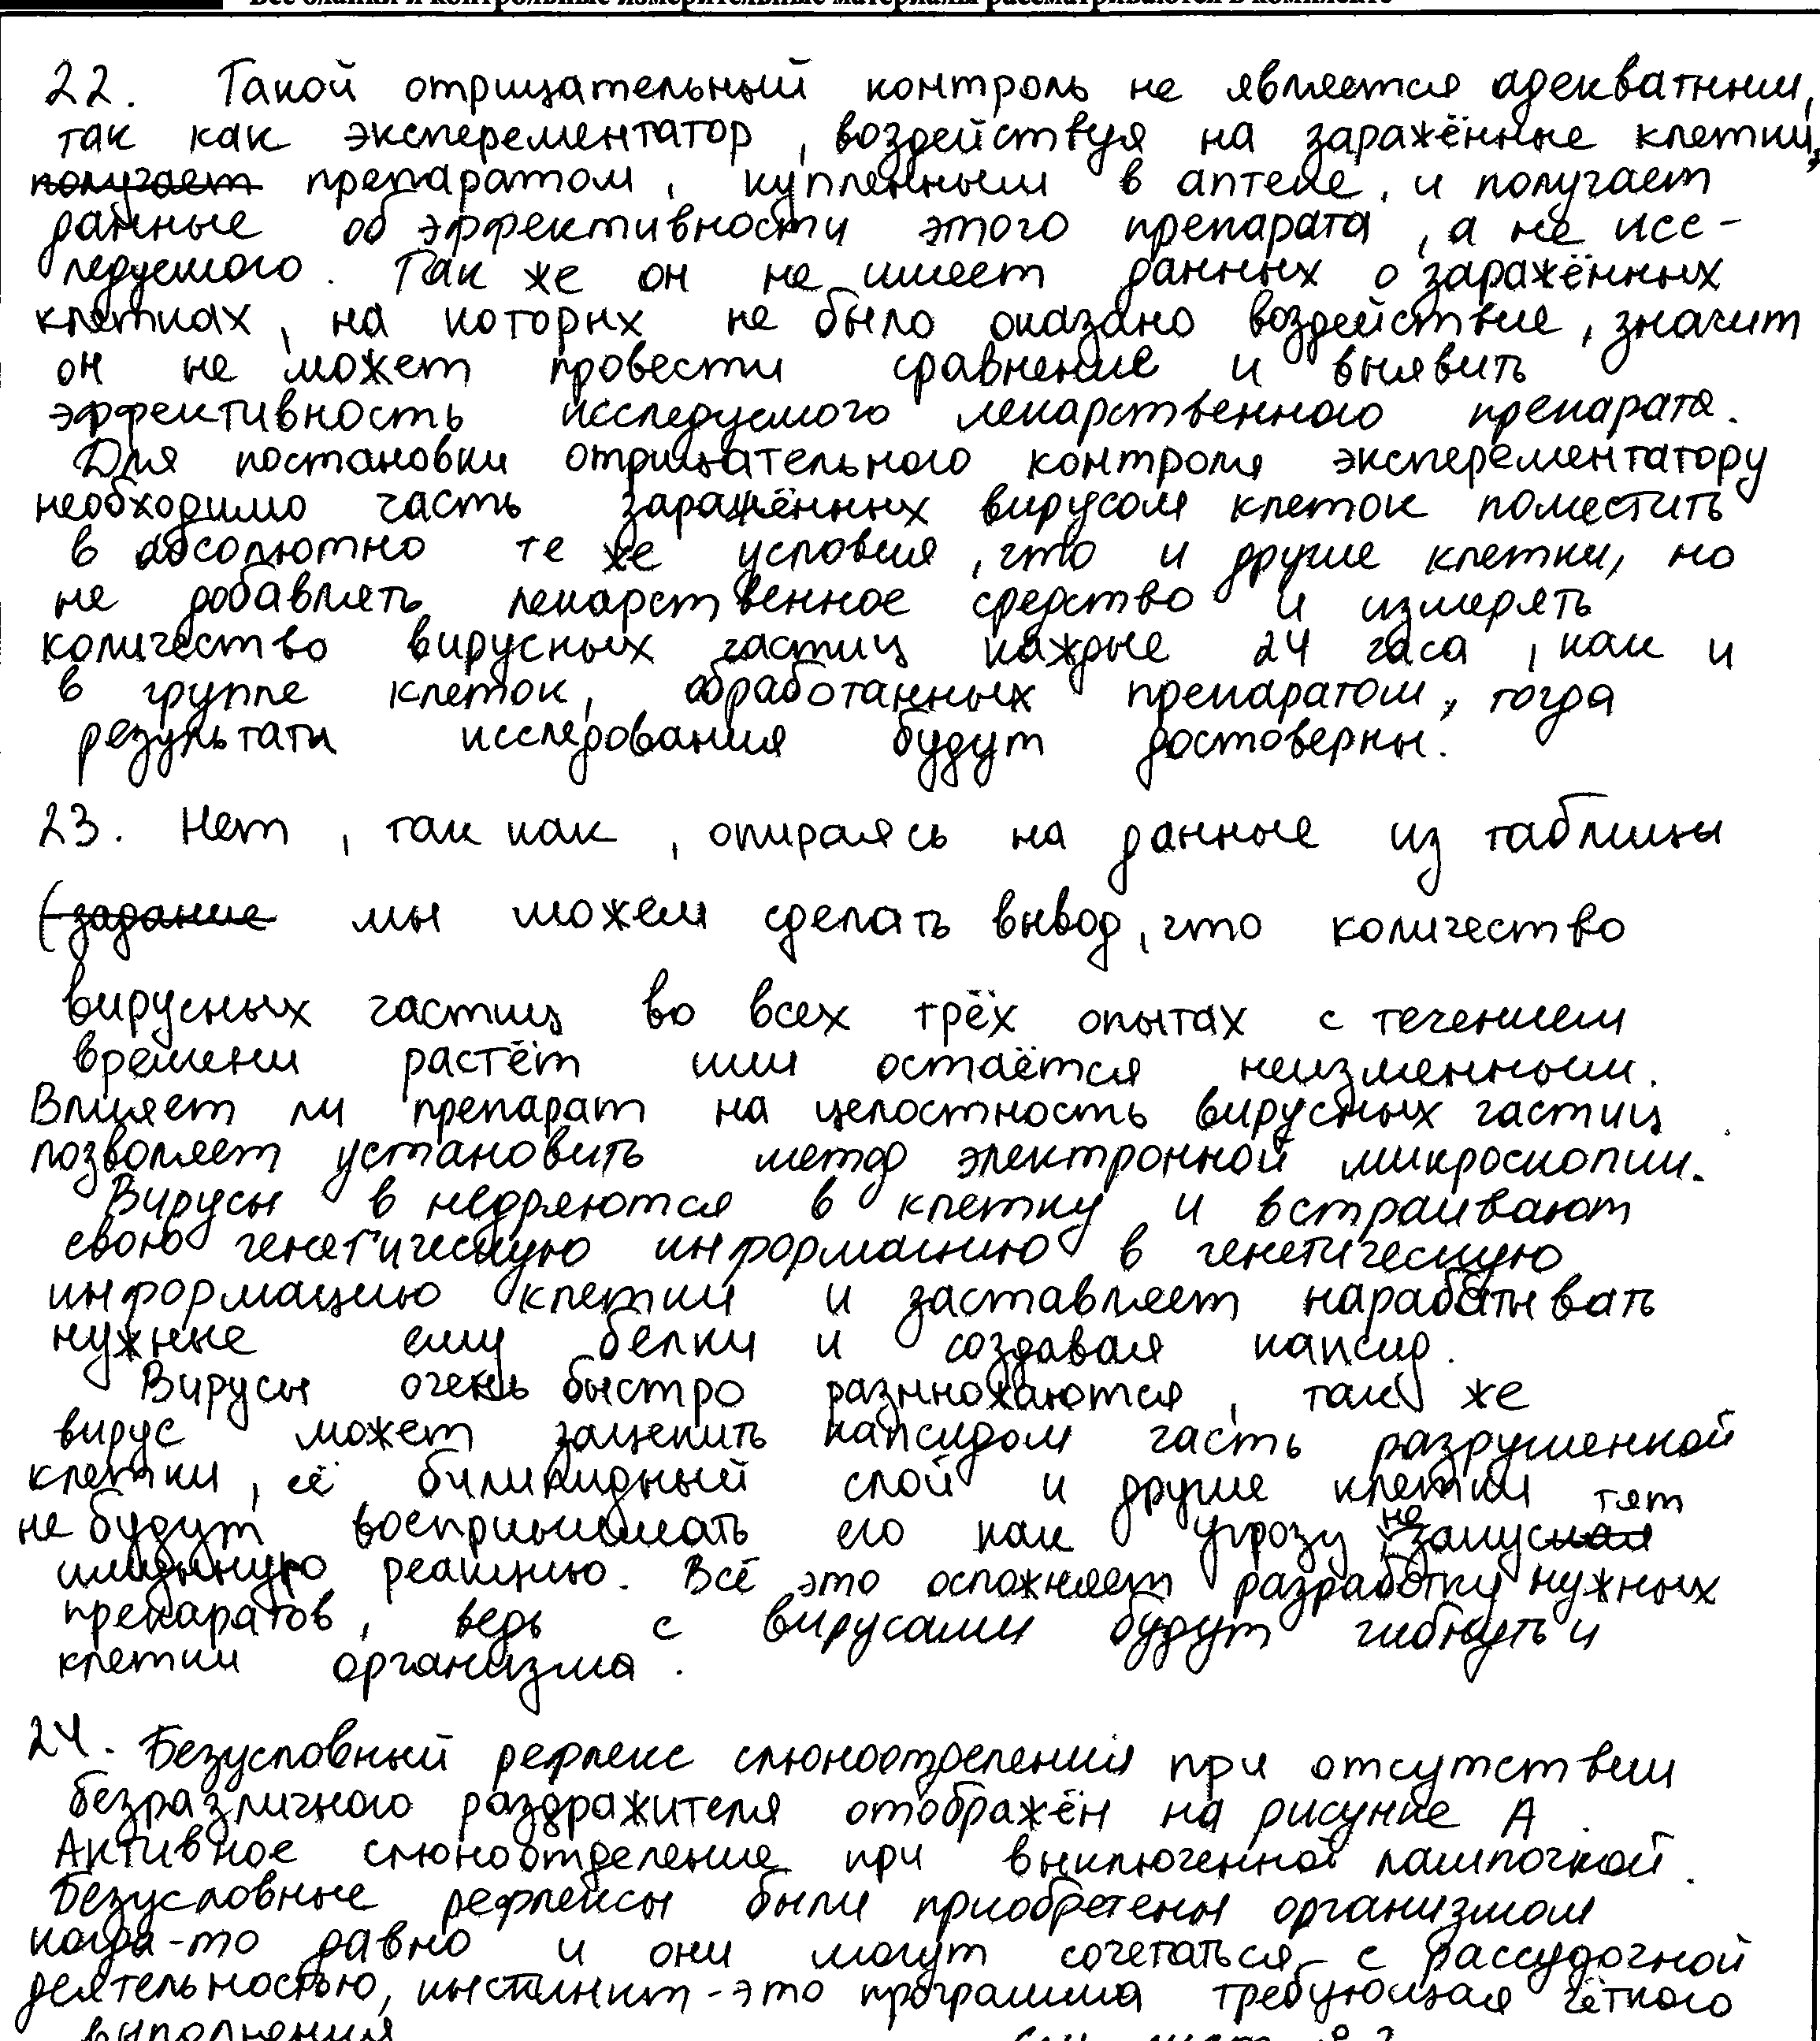 Все бланки и контрольные измерительные материалы рассматриваются в комплекте
22. Такой отрицательный контроль не является адекватным,
так как эксперементатор, воздействуя на заражённые клетки,
получает препаратом, купленным в аптеке, и получает
данные об эффективности этого препарата, а не исс-
ледуемого. Так же он не имеет данных о заражённых
клетках, на которых не было оказано воздействие, значит
он не может провести сравнение и выявить
эффективность исследуемого лекарственного препарата.
Для постановки отрицательного контроля эксперементатору
необходимо часть заражённых вирусом клеток поместить
в абсолютно те же условия, что и другие клетки, но
не добавлять лекарственное средство и измерять
количество вирусных частиц каждые 24 часа, как и
в группе клеток, обработанных препаратом, тогда
результаты исследования будут достоверны.
23. Нет, так как, опираясь на данные из таблицы
(задание мы можем сделать вывод, что количество
вирусных частиц во всех трёх опытах с течением
времени растёт или остаётся неизменным.
Влияет ли препарат на целостность вирусных частиц
позволяет установить метод электронной микроскопии.
Вирусы внедряются в клетку и встраивают
свою генетическую информацию в генетическую
информацию клетки и заставляет нарабатывать
нужные ему белки и создавая капсид.
Вирусы очень быстро размножаются, так же
вирус может зацепить капсидом часть разрушенной
клетки, её билипидный слой и другие клетки
не будут воспринимать его как угрозу не запустят
иммунную реакцию. Всё это осложняет разработку нужных
препаратов, ведь с вирусами будут гибнуть и
клетки организма.
24. Безусловный рефлекс слюноотделения при отсутствии
безразличного раздражителя отображён на рисунке А.
Активное слюноотделение при выключенной лампочкой.
Безусловные рефлексы были приобретены организмом
когда-то давно и они могут сочетаться с рассудочной
деятельностью, инстинкт - это программа требующая чёткого
выполнения